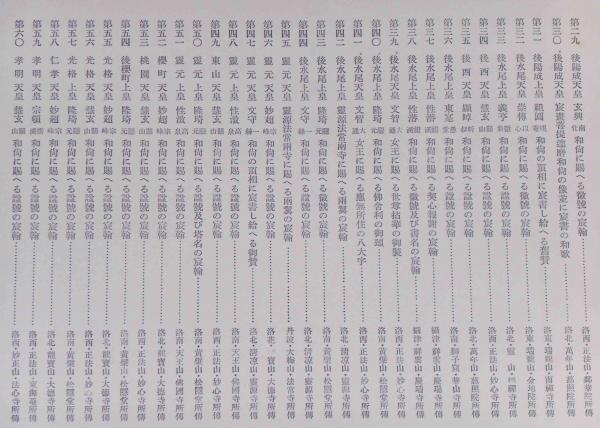 第二九、後陽成天皇 玄興南化 和尚に賜へる徽號の宸翰……洛西・正法山・鄰華院所傳
第三〇、後陽成天皇 宸畫菩提達磨和尚の像並に宸書の和歌……洛北・萬年山・慈照院所傳
第三一、後陽成上皇 祖圓規菴 和尚の頂相に宸書し給へる舊賛……洛東・瑞龍山・南禪寺所傳
第三二、後水尾天皇 崇傳以心 和尚に賜へる徽號の宸翰……洛東・瑞龍山・金地院所傳
第三三、後水尾上皇 義亨徹翁 和尚に賜へる徽號の宸翰……洛北・靈山・德禪寺所傳
第三四、後西天皇 慧玄關山 和尚に賜へる諡號の宸翰……洛西・正法山・妙心寺所傳
第三五、後西天皇 顯晫昕叔 和尚に賜へる諡號の宸翰……洛北・萬年山・慈照院所傳
第三六、後水尾上皇 東寔愚堂 和尚に賜へる諡號の宸翰……洛南・獅子窟・華山寺所傳
第三七、後水尾上皇 性潛龍溪 和尚に賜へる契心報謝の宸翰……攝津・祥雲山・慶瑞寺所傳
第三八、後水尾上皇 性潛龍溪 和尚に賜へる徽號及び書名の宸翰……攝津・祥雲山・慶瑞寺所傳
第三九、後水尾天皇 文智大通 女王に賜へる世拿拈華の御製……洛西・正法山・妙心寺所傳
第四〇、後水尾上皇 隆琦隱元 和尚に賜へる佛舍利の御頌……洛南・黄檗山・松隱堂所傳
第四一、後水尾天皇 文智大通 女王に賜へる應無所住の八大字……洛西・正法山・妙心寺所傳
第四二、後水尾上皇 靈源法常兩寺に賜へる兩翼の宸翰……洛北・清凉山・靈源寺所傳
第四三、後水尾上皇 隆琦隱元 和尚に賜へる徽號の宸翰……洛南・黄檗山・松隱堂所傳
第四四、後水尾上皇 文守一絲 和尚に賜へる諡號の宸翰……洛北・清凉山・靈源寺所傳
第四五、靈元天皇 靈源法常兩寺に賜へる兩翼の宸翰……丹波・大梅山・法常寺所傳
第四六、靈元天皇 妙超宗峰 和尚に賜へる諡號の宸翰……洛北・龍寶山・大德寺所傳
第四七、靈元上皇 文守一絲 和尚の頂相に宸書し給へる御贊……洛北・清凉山・靈源寺所傳
第四八、靈元上皇 性潡高泉 和尚に賜へる諡號の宸翰……洛南・天王山・佛國寺所傳
第四九、東山天皇 慧玄關山 和尚に賜へる諡號の宸翰……洛西・正法山・妙心寺所傳
第五〇、靈元上皇 隆琦隱元 和尚に賜へる諡號及び塔名の宸翰……洛南・黄檗山・松隱堂所傳
第五一、靈元上皇 性潡高泉 和尚に賜へる諡號の宸翰……洛南・天王山・佛國寺所傳
第五二、櫻町天皇 妙超宗峰 和尚に賜へる諡號の宸翰……洛北・龍寶山・大德寺所傳
第五三、桃園天皇 慧玄關山 和尚に賜へる諡號の宸翰……洛西・正法山・妙心寺所傳
第五四、後櫻町上皇 隆琦隱元 和尚に賜へる諡號の宸翰……洛南・黄檗山・松隱堂所傳
第五五、光格天皇 妙超宗峰 和尚に賜へる諡號の宸翰……洛北・龍寶山・大德寺所傳
第五六、光格天皇 慧玄關山 和尚に賜へる諡號の宸翰……洛西・正法山・妙心寺所傳
第五七、光格上皇 隆琦隱元 和尚に賜へる諡號の宸翰……洛南・黄檗山・松隱堂所傳
第五八、仁孝天皇 妙超宗峰 和尚に賜へる諡號の宸翰……洛北・龍寶山・大德寺所傳
第五九、孝明天皇 宗頓 和尚に賜へる諡號の宸翰……洛西・正法山・東海菴所傳
第六〇、孝明天皇 慧玄關山 和尚に賜へる諡號の宸翰……洛西・妙正山・法心寺所傳